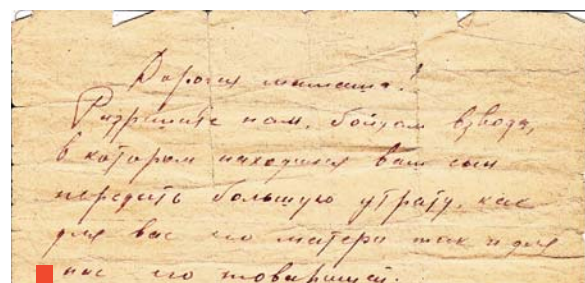 Дорогая мамаша!
Разрешите нам, бойцам взвода,
в котором находился ваш сын
передать большую утрату, как
для вас его матери так и для
нас его товарищей.